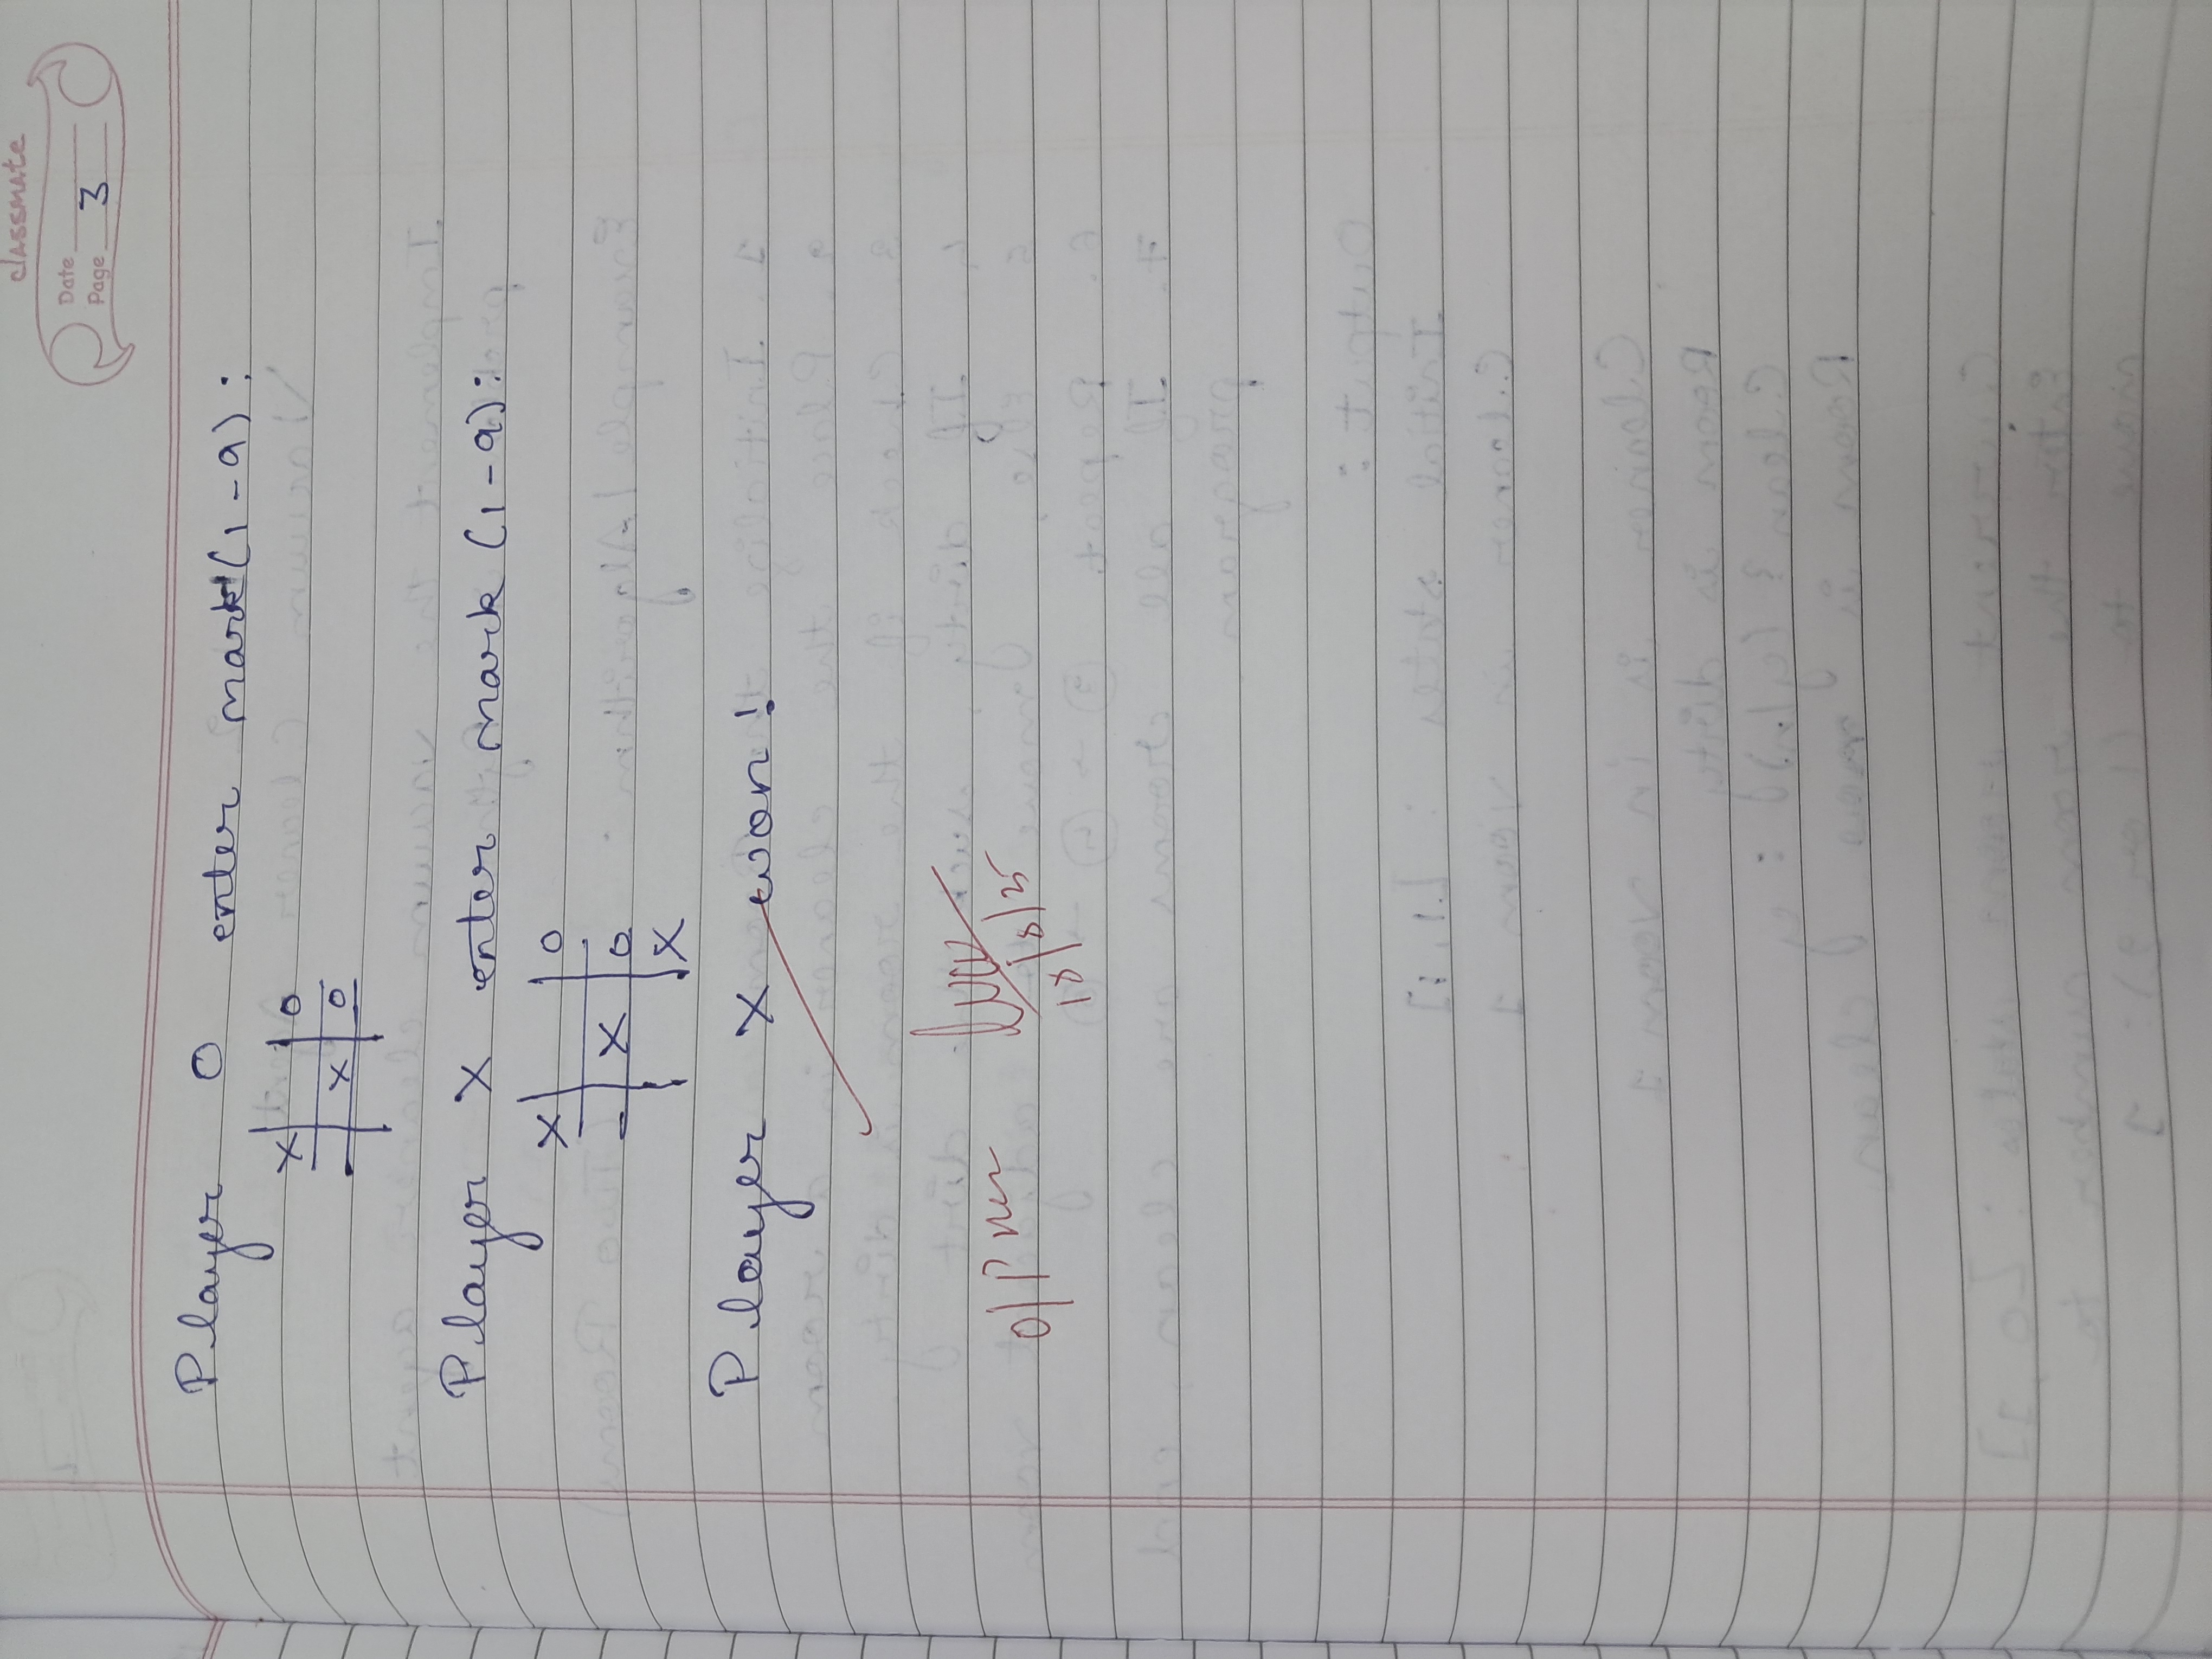 classmate
Date
Page 3
Player O enter mark (1-9):
X | | O
| X | O
Player X enter mark (1-9):
X | | O
| X | O
| | X
Player X won!
O/P
18/8/25